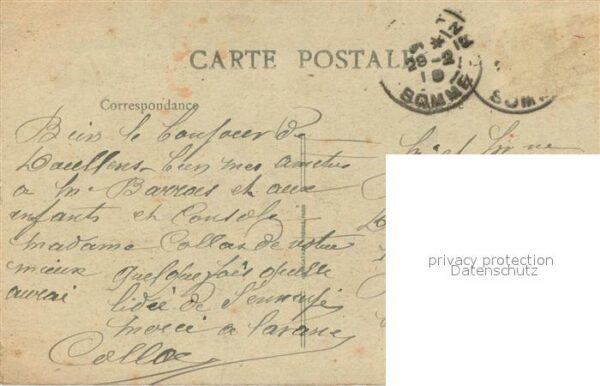 CARTE POSTALE
29-2
SOMME
SOMM
Correspondance
Bien le bonjour de
Doullens bien mes amities
a Mr Barrois et aux
infants et Consolé
madame Collas de votre
mieux quelquefois quelle
aurai lidée de Sennuyé
merci a lavance
Collas
Mr et
privacy protection
Datenschutz